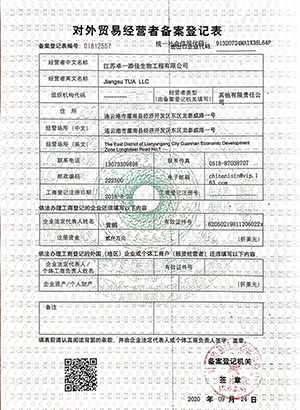 对外贸易经营者备案登记表
备案登记表编号: 01812557
统一社会信用代码:
进出口企业代码:
91320724MA1X36L64P
经营者中文名称 江苏卓一添佳生物工程有限公司
经营者英文名称 Jiangsu TUA LLC
组织机构代码 经营者类型 (由备案登记机关填写) 其他有限责任公司
住 所 连云港市灌南县经济开发区东区龙泰威路
经营场所(中文) 连云港市灌南县经济开发区东区龙泰威路
经营场所(英文) The East District of Lianyungang City Guannan Economic Development Zone Longtaiwei Road No.1
联系电话 13073309898 联系传真 0518-87038707
邮政编码 222500 电子邮箱 chinanisin@vip.163.com
工商登记注册日期 2018-8-22 工商登记注册号
依法办理工商登记的企业还须填写以下内容
企业法定代表人姓名 黄鹤 有效证件号
注册资金 贰仟万元 (折美元)
依法办理工商登记的外国(地区)企业或个体工商户(独资经营者)还须填写以下内容
企业法定代表人/ 个体工商负责人姓名 有效证件号
企业资产/个人财产 (折美元)
备注
填表前请认真阅读背面的条款,并由企业法定代表人或个体工商负责人签字、盖章。
备案登记机关
签 章
2020 年 09 月 24 日